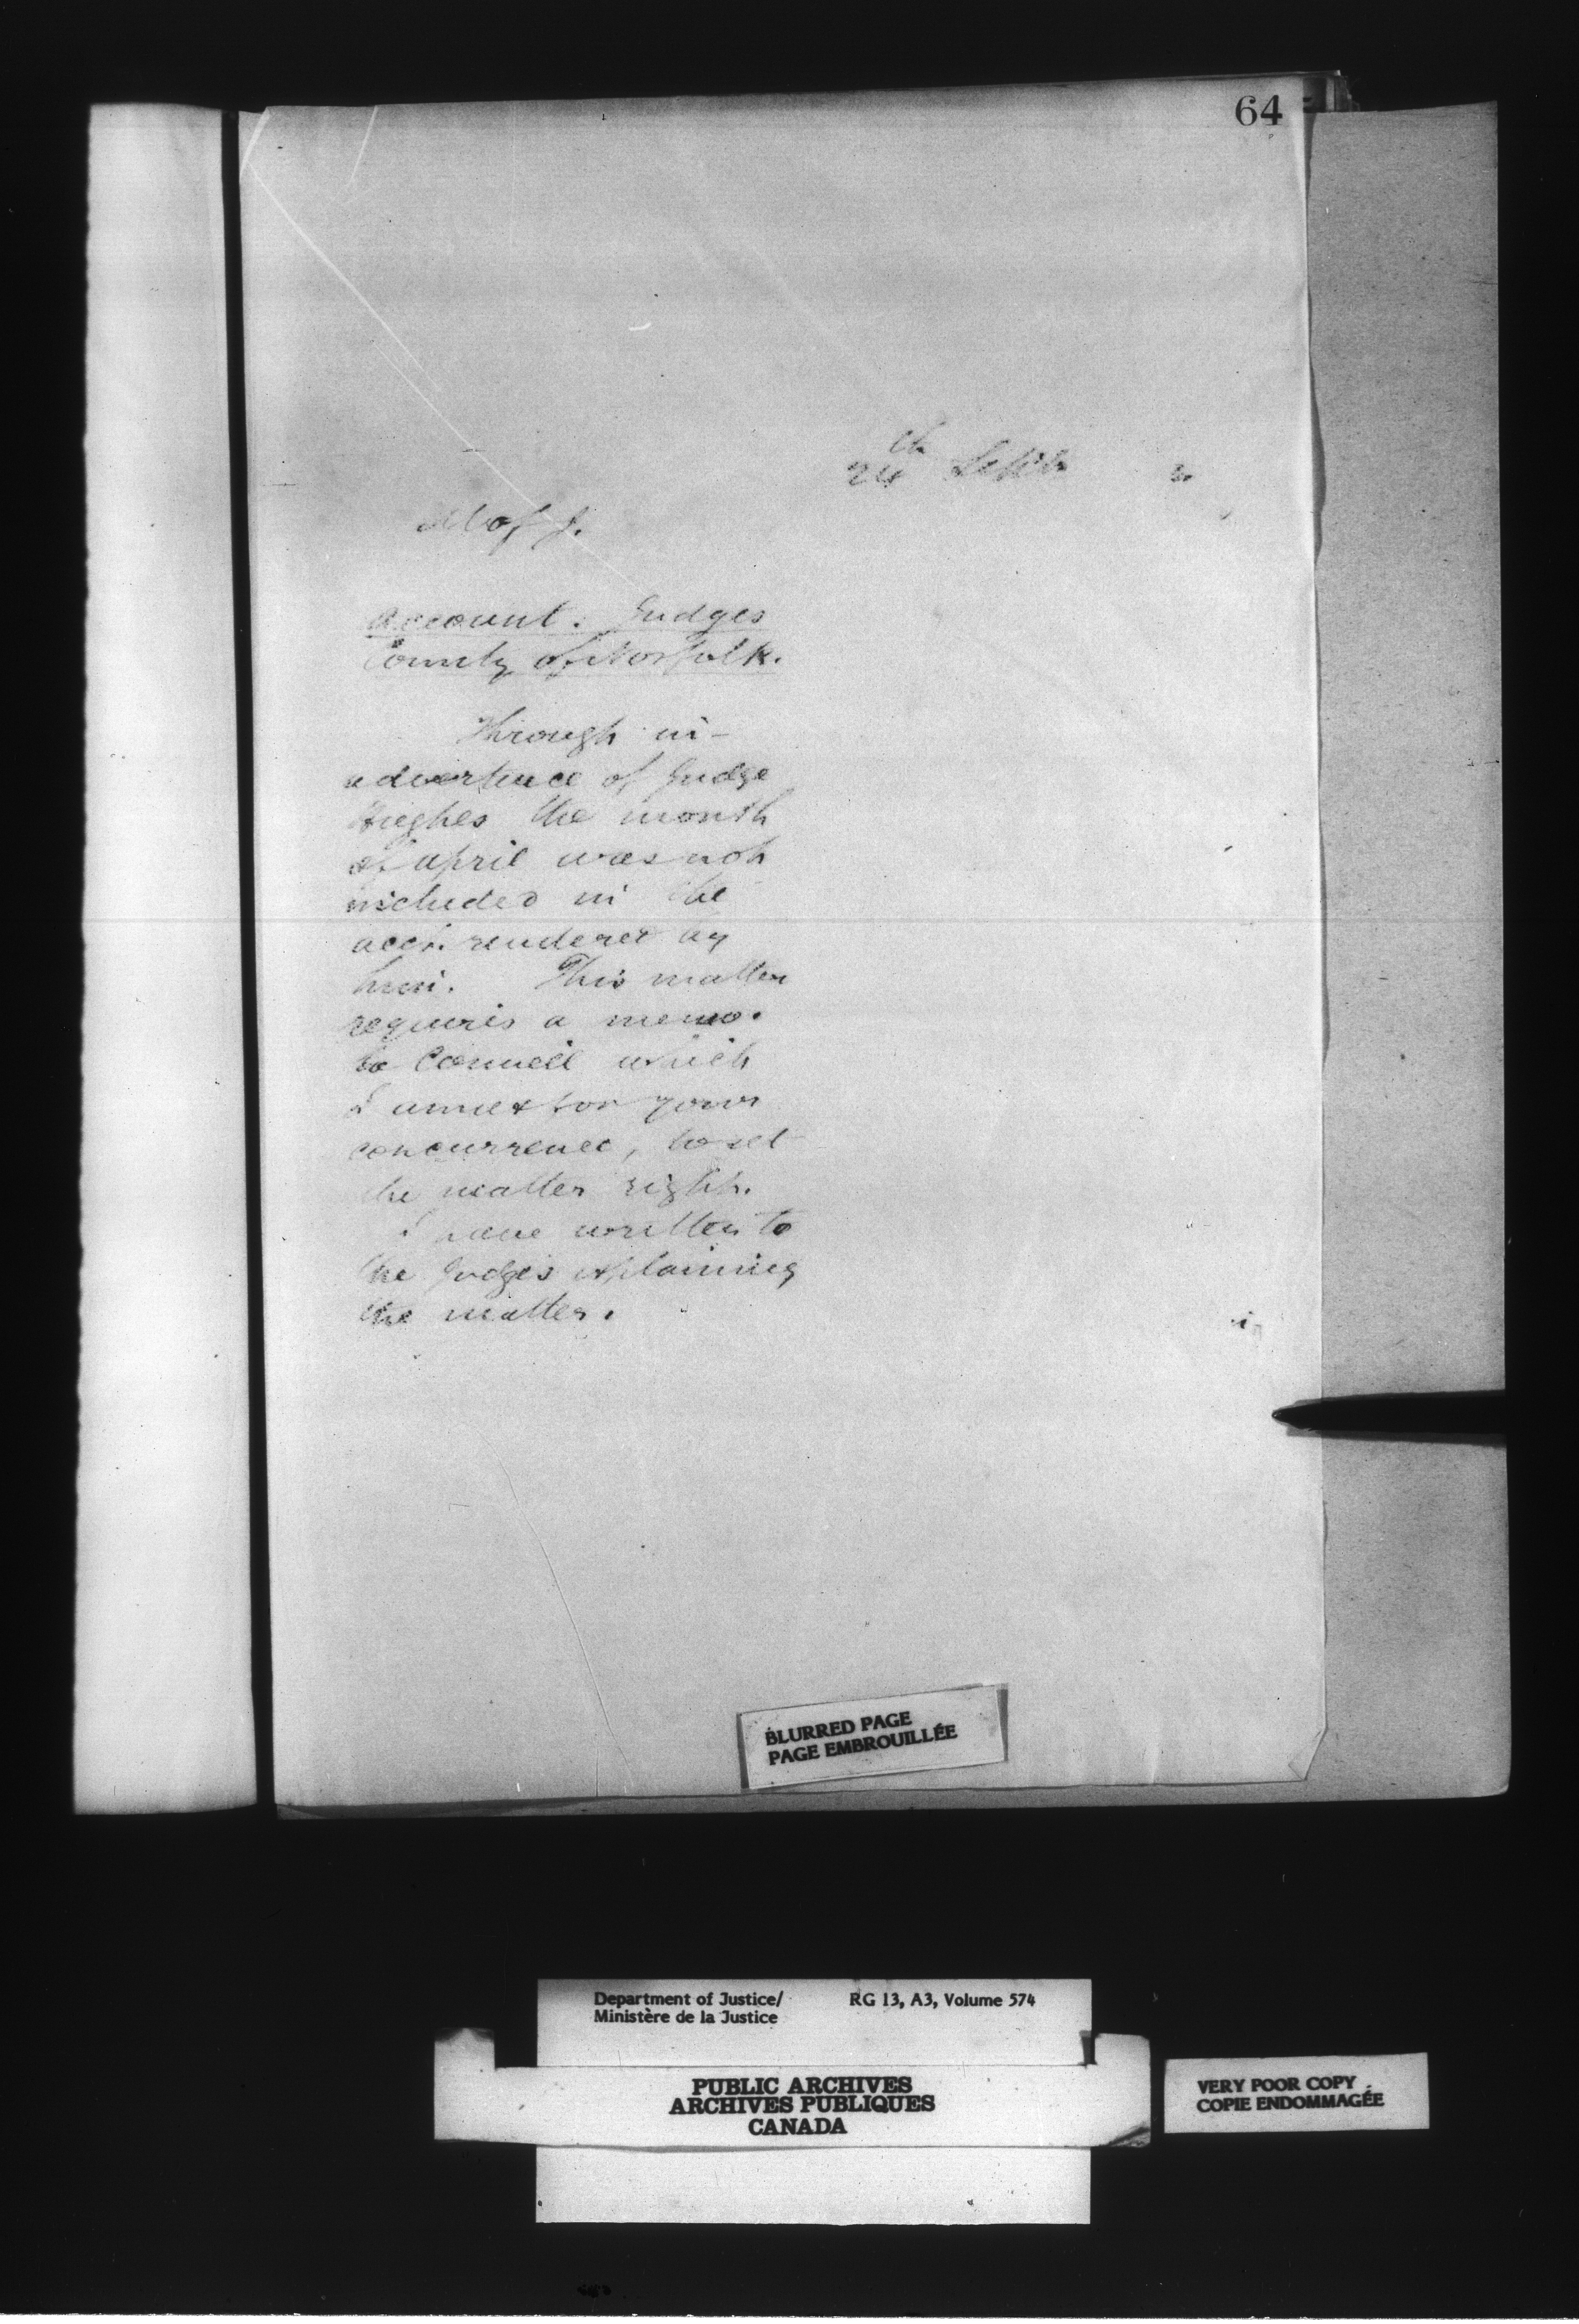 64
24th Septr
M of J.
Account. Judges
County of Norfolk.
Through in-
advertence of Judge
Hughes the month
of April was not
included in the
acct. rendered by
him. This matter
requires a memo.
to Council which
I annex for your
concurrence, to set
the matter right.
I have written to
the Judges explaining
the matter.
BLURRED PAGE
PAGE EMBROUILLÉE
Department of Justice/ RG 13, A3, Volume 574
Ministère de la Justice
PUBLIC ARCHIVES
ARCHIVES PUBLIQUES
CANADA
VERY POOR COPY
COPIE ENDOMMAGÉE